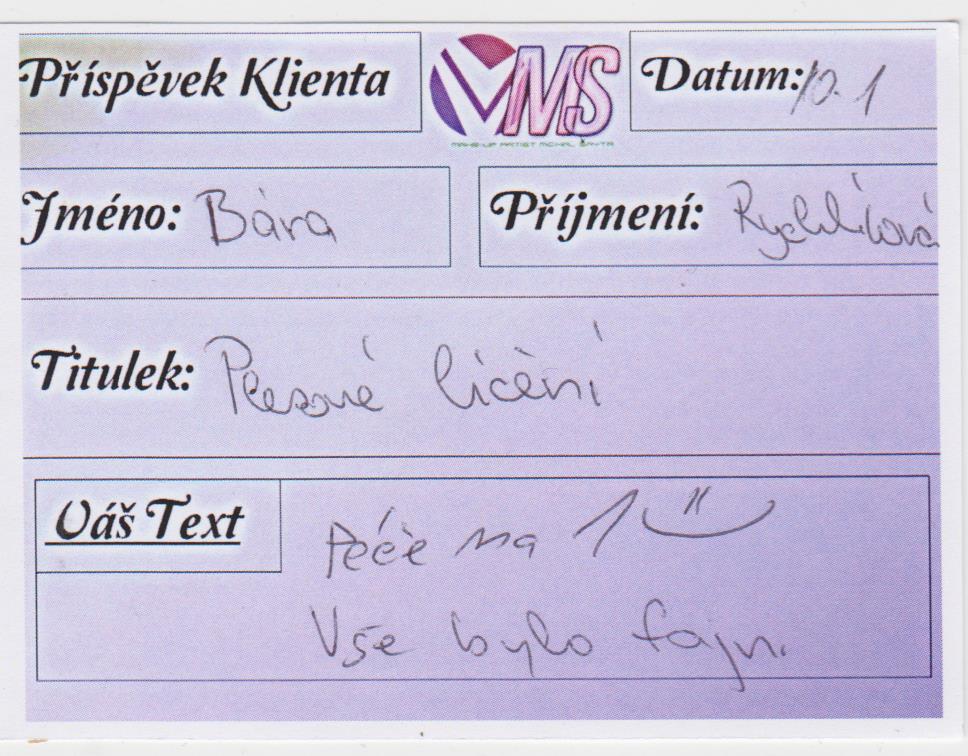 Příspěvek Klienta
VMS
MAKE-UP ARTIST MICHAL ŠAVTA
Datum: 10. 1
Jméno: Bára
Příjmení: Rychlíková
Titulek: Plesové líčení
Váš Text
Péče na 1
Vše bylo fajn.